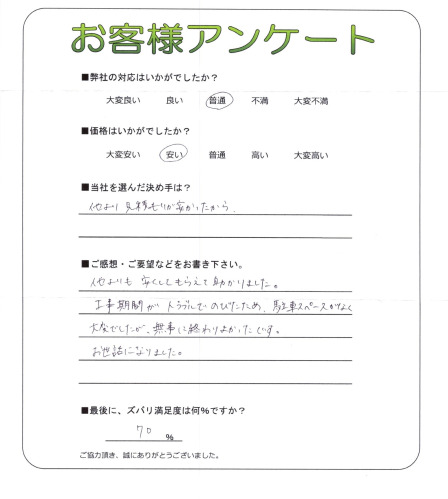 お客様アンケート
■弊社の対応はいかがでしたか?
大変良い 良い 普通 不満 大変不満
■価格はいかがでしたか?
大変安い 安い 普通 高い 大変高い
■当社を選んだ決め手は?
他より見積もりが安かったから。
■ご感想・ご要望などをお書き下さい。
他よりも安くしてもらえて助かりました。
工事期間がトラブルでのびたため、駐車スペースがなく
大変でしたが、無事に終わりよかったです。
お世話になりました。
■最後に、ズバリ満足度は何%ですか?
70 %
ご協力頂き、誠にありがとうございました。